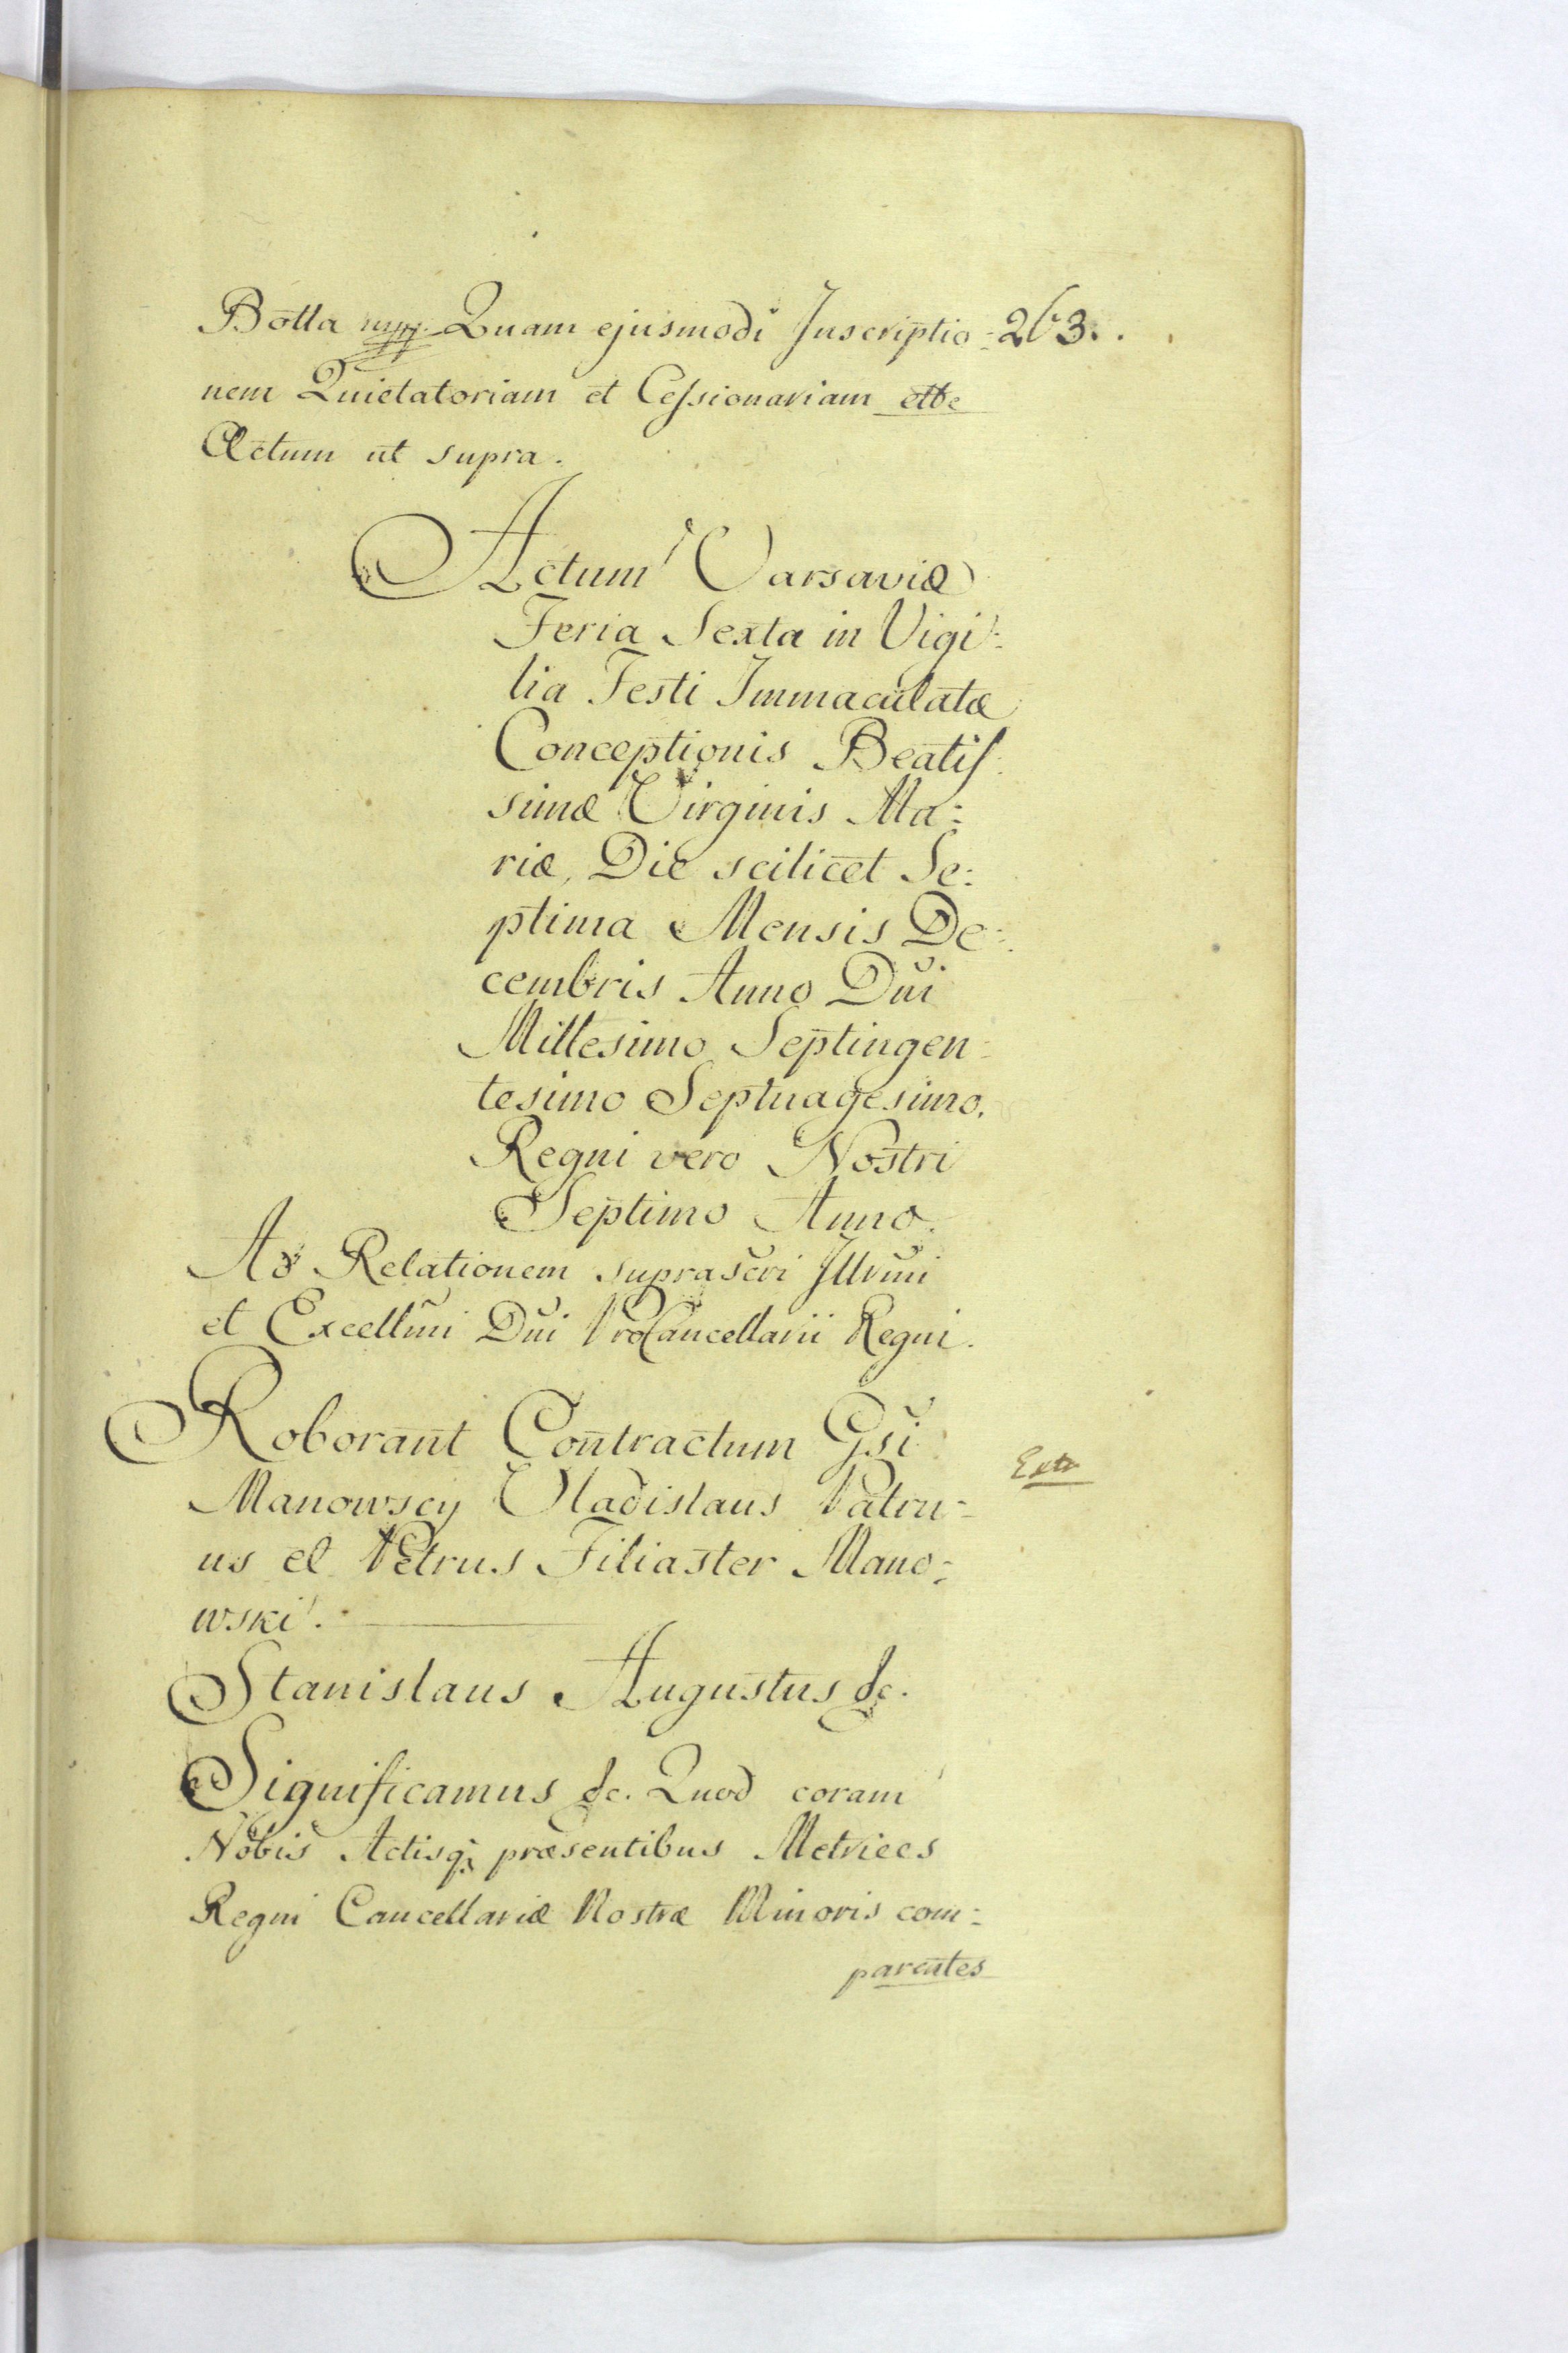 Botta mpp. Quam ejusmodi Inscriptio= 263.
nem Quietatoriam et Cessionariam ettc
Actum ut supra.
Actum Varsaviæ
Feria Sexta in Vigi=
lia Festi Immaculatæ
Conceptionis Beatis=
simæ Virginis Ma=
riæ, Die scilicet Se=
ptima Mensis De=
cembris Anno Dni
Millesimo Septingen=
tesimo Septuagesimo.
Regni vero Nostri
Septimo Anno.
Ad Relationem suprascri Illrmi
et Excellmi Dni ProCancellarii Regni.
Roborant Contractum Gsi
Extr
Manowscy Vladislaus Patru=
us et Petrus Filiaster Mano=
wski.
Stanislaus Augustus &c.
Significamus &c. Quod coram
Nobis Actisq; præsentibus Metrices
Regni Cancellariæ Nostræ Minoris com=
parentes